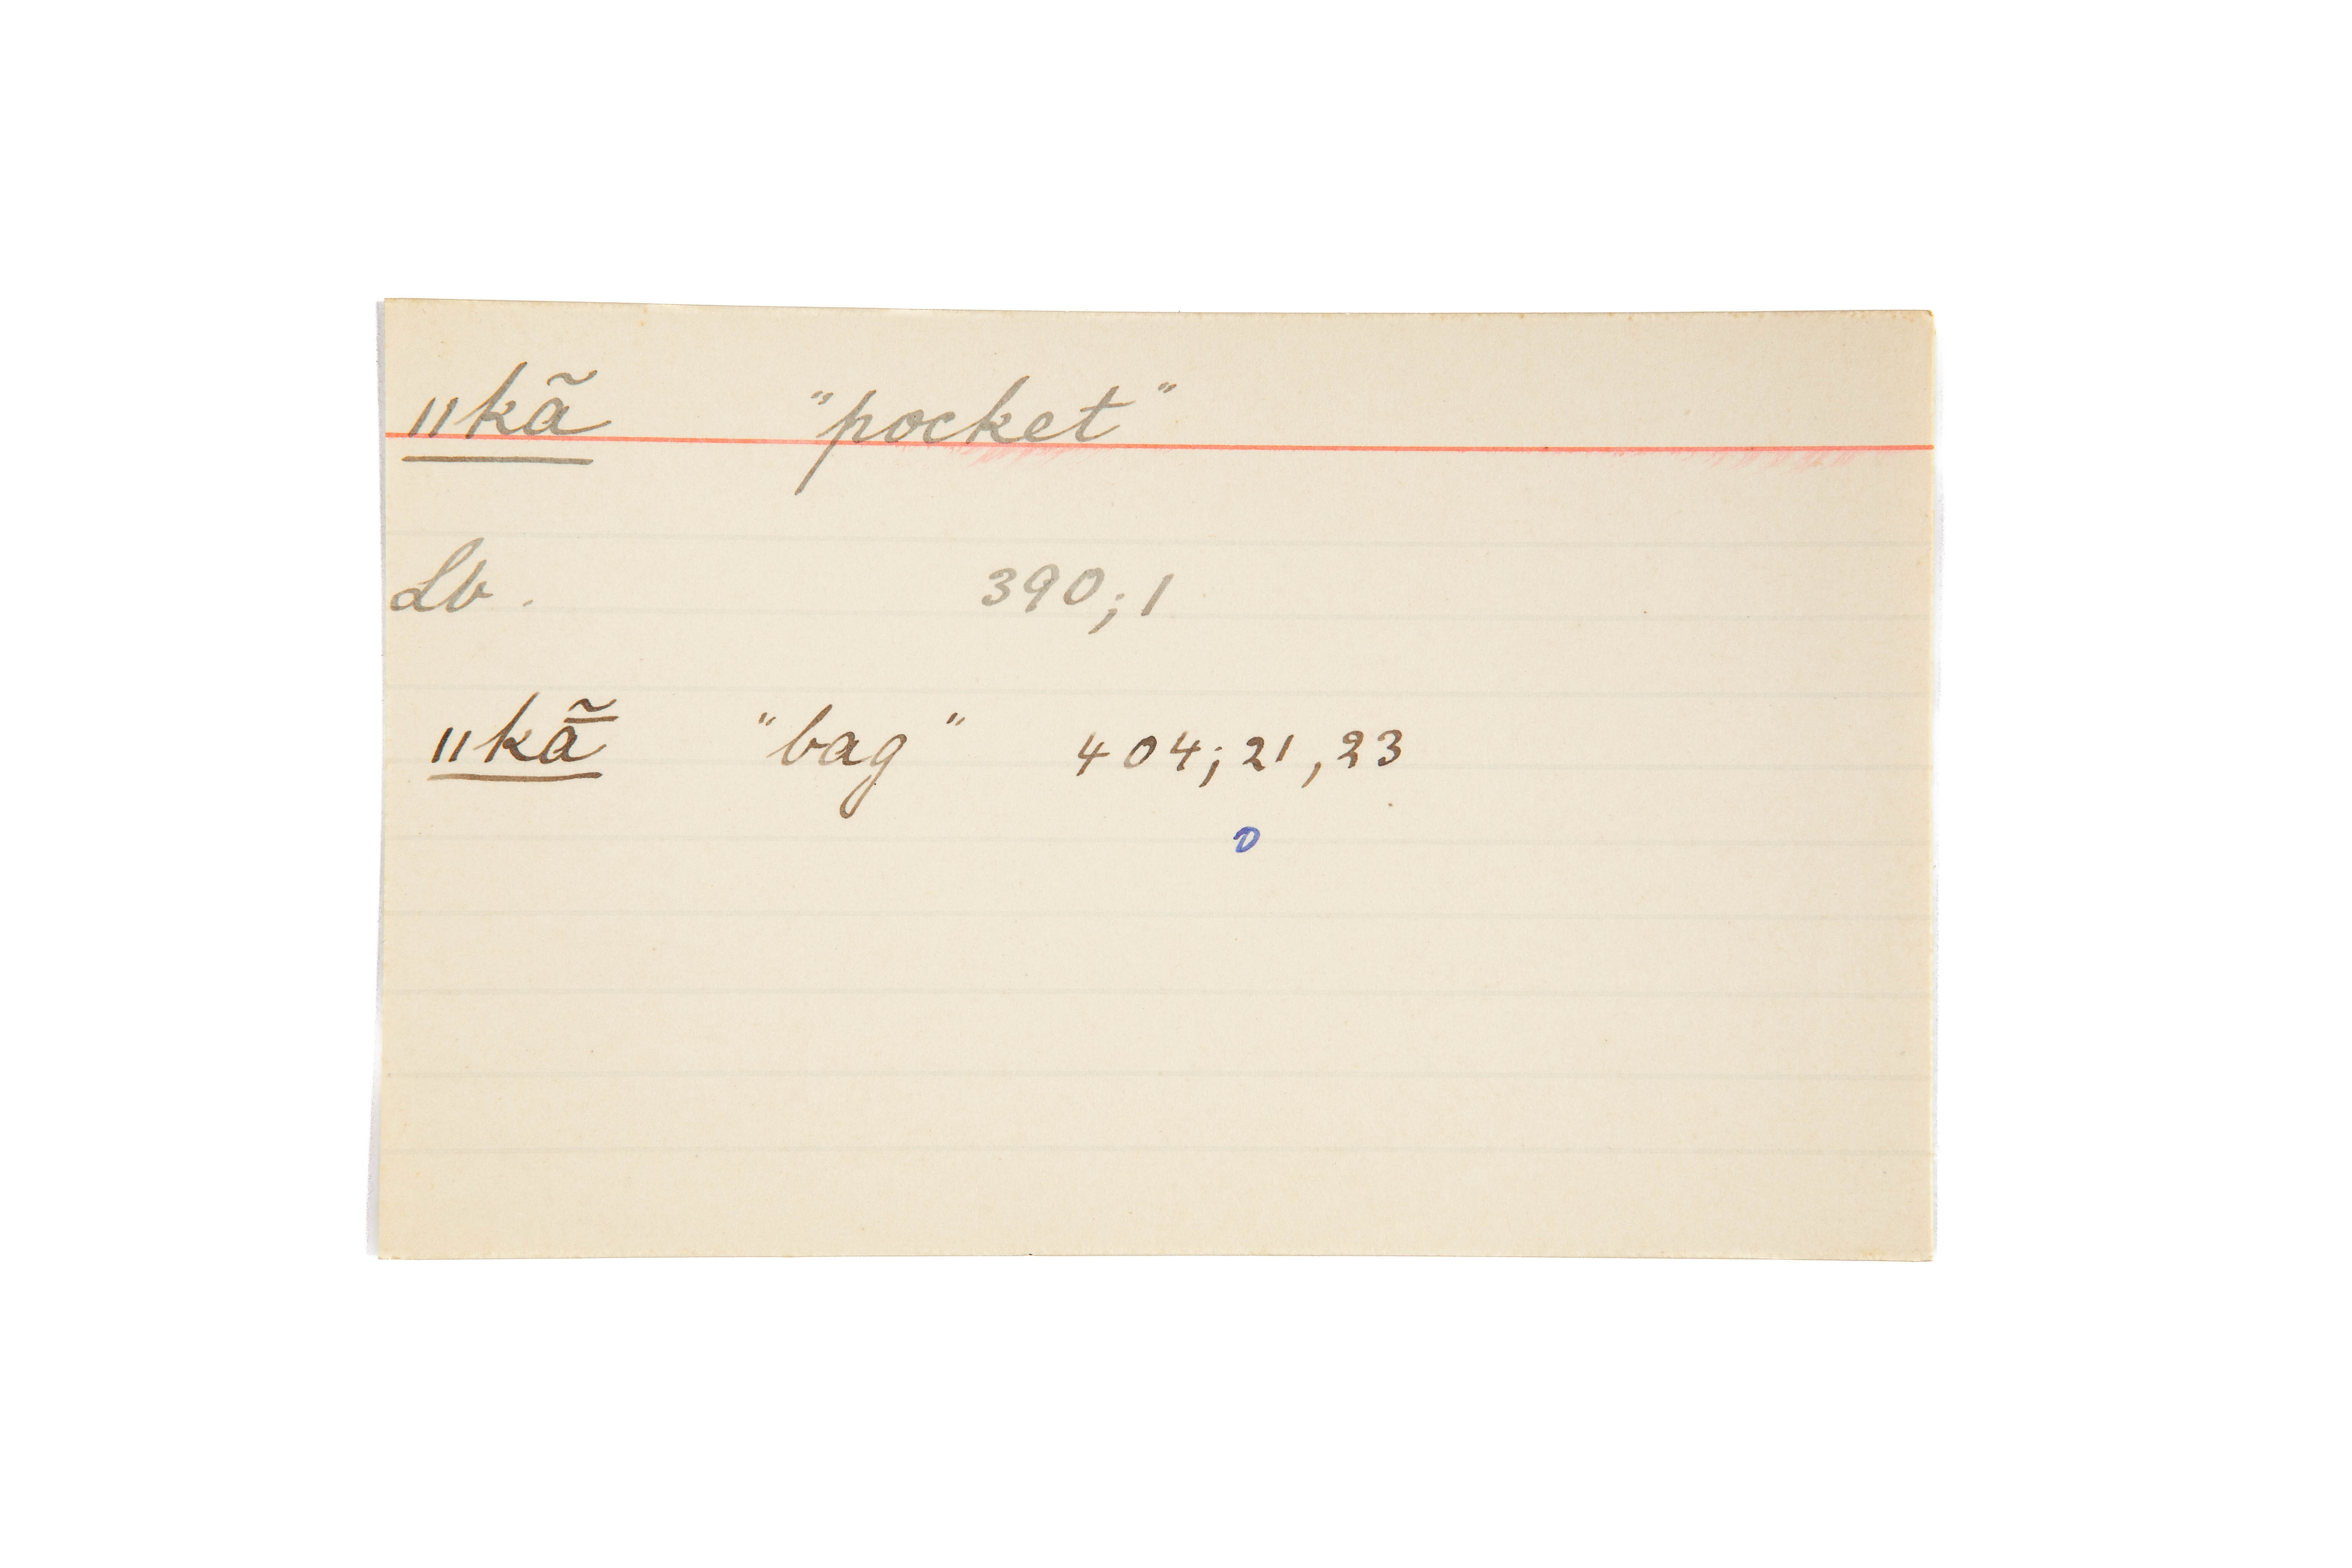 ǁkã "pocket"
Lb. 390;1
ǁkã̄ "bag" 404;21,23
o